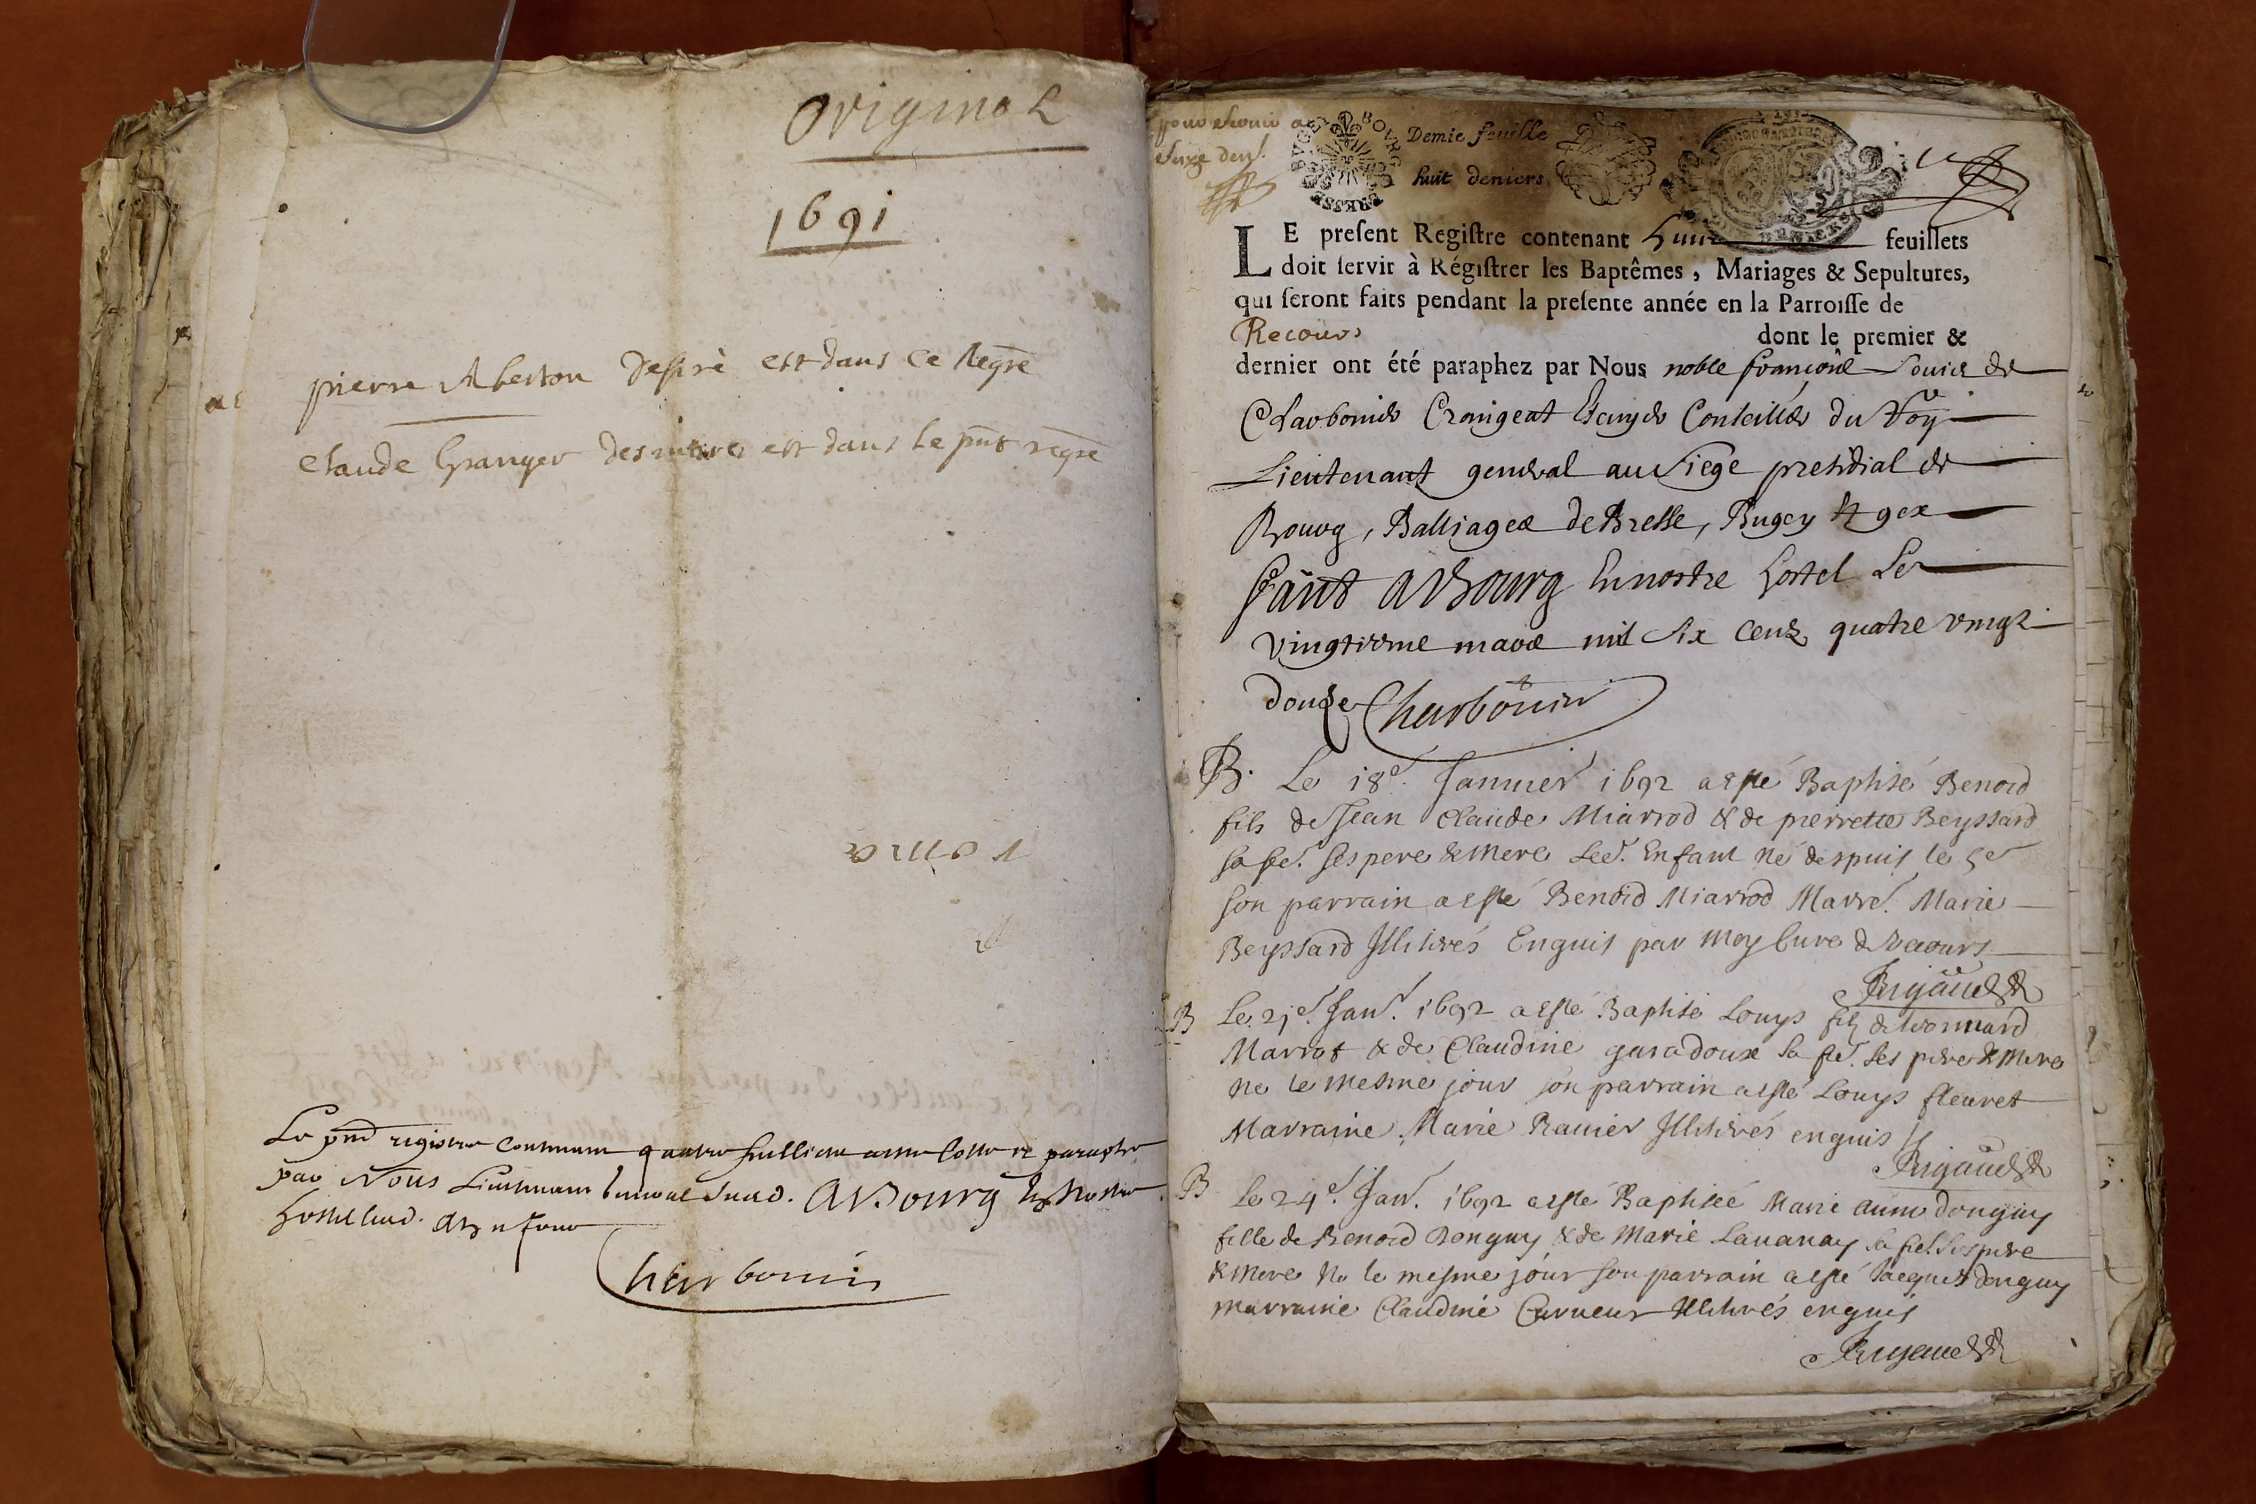 Original
1691
pierre Aberton desiré est dans ce Regre
Claude Granger des est dans le pnt regre
Le pnt registre contenant quatre feullietz a este cotte et paraphe
par Nous Lieutenant general susd. A Bourg En Nostre
hostel lesd. an et jour
Charbonnier
BVGEY BOVRG BRESSE
Demie feuille
huit deniers
LE present Registre contenant huit feuillets
doit servir à Régistrer les Baptêmes, Mariages & Sepultures,
qui seront faits pendant la presente année en la Parroisse de
Recours dont le premier &
dernier ont été paraphez par Nous noble françois Louis de
Charbonier Crangeat Escuyer Conseiller du Roy
Lieutenant general au Siege presidial de
Bourg, Balliages de Bresse, Bugey et gex
faint A Bourg En nostre hostel Le
vingtieme mars mil six cens quatre vingt
douze Charbonier
B. Le 18e. Januier 1692 a esté Baptisé Benoid
fils de Jean Claude Miarrod & de pierrette Beyssard
sa fe. ses pere & mere led. Enfant né despuis le 5e
son parrain a esté Benoid Miarrod Marre. Marie
Beyssard Illiterés Enquis par moy Cure de Recours
Rigaud
B Le 21e. Janr. 1692 a esté Baptisé Louys filz de Leonnard
Marrot & de Claudine garadoux sa fe. ses pere & mere
ne le mesme jour son parrain a esté Louys fleuret
Marraine Marie Ravier Illiterés enquis
Rigaud
B Le 24e. Janr. 1692 a esté Baptisée Marie anne donguy
fille de Benoid Donguy & de Marie Lauanay sa fe. ses pere
& mere Ne le mesme jour son parrain a esté Jacques donguy
marraine Claudine Carueur Illiterés enquis
Rigaud